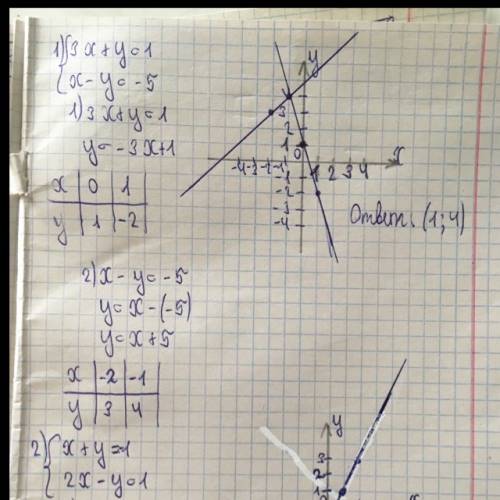 1) { 3x + y = 1
{ x - y = -5
1) 3x + y = 1
y = -3x + 1
x | 0 | 1
y | 1 | -2
y
3
2
1
0
-4 -3 -2 -1 1 2 3 4 x
-2
-3
-4
Ответ: (1; 4)
2) x - y = -5
y = x - (-5)
y = x + 5
x | -2 | -1
y | 3 | 4
2) { x + y = 1
{ 2x - y = 1
y
3
2
1